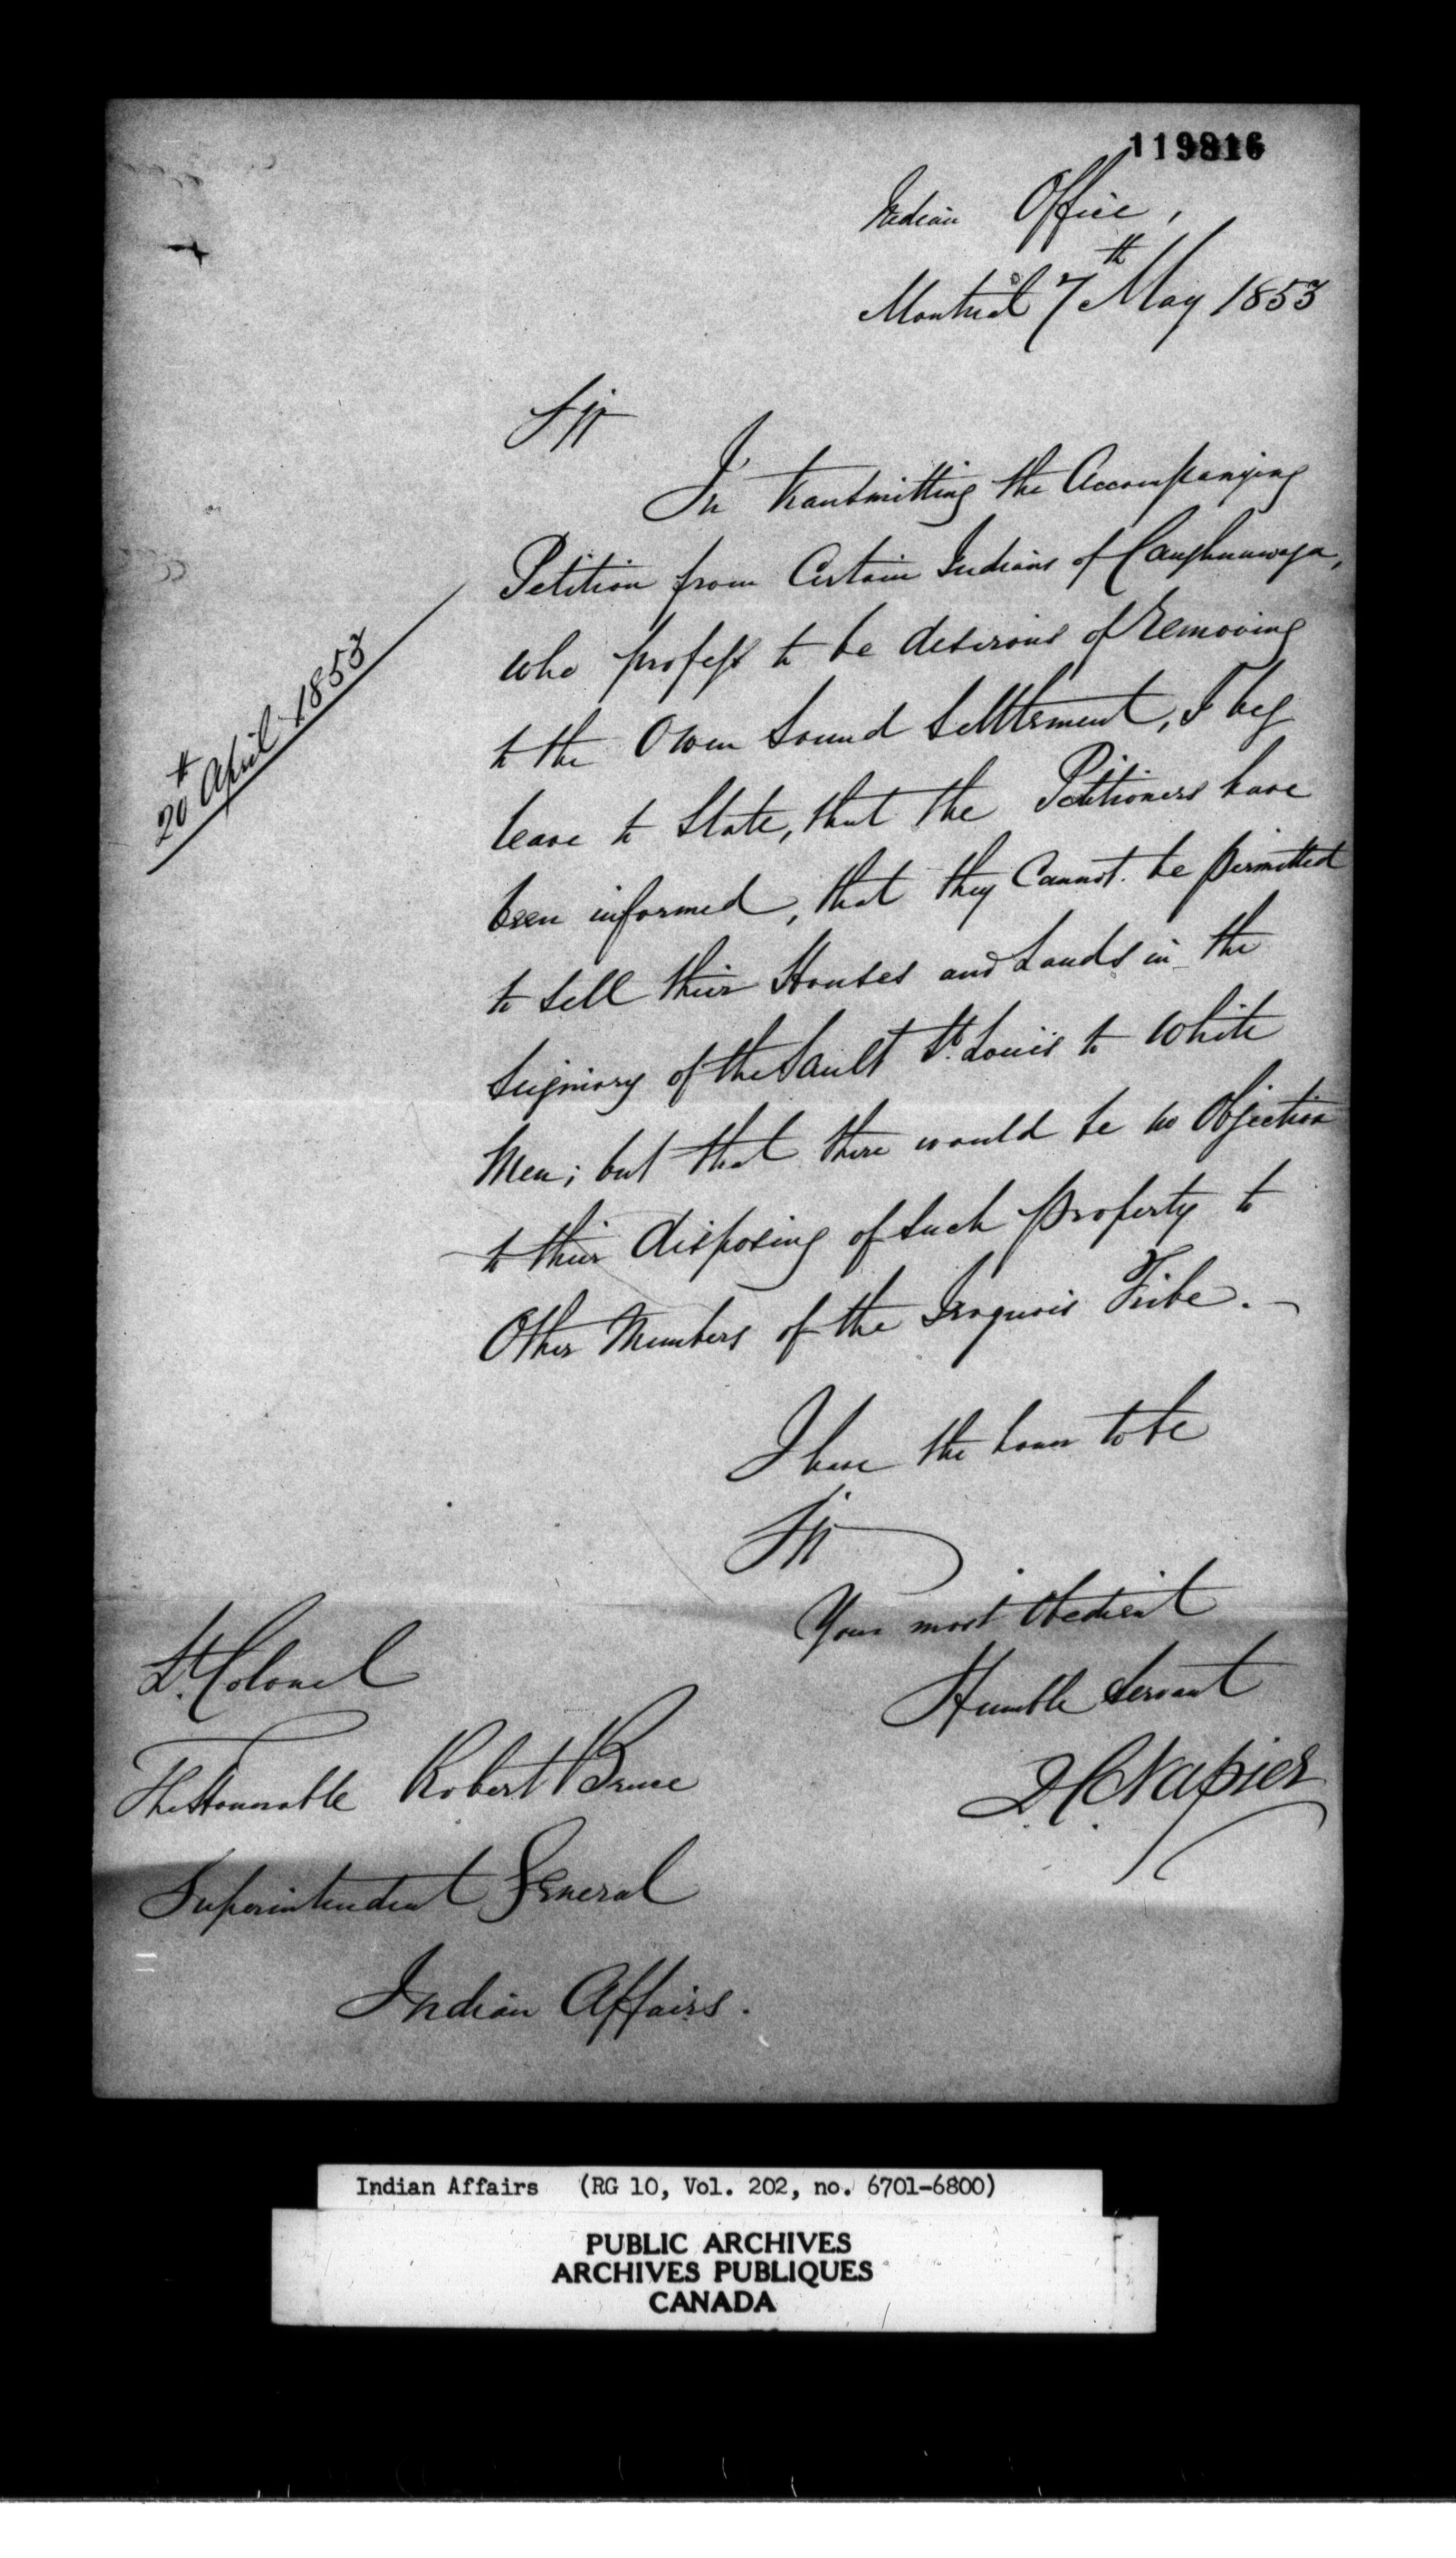 119816
Indian Office,
Montreal 7th May 1853
Sir
In transmitting the Accompanying
Petition from Certain Indians of Caughnawaga,
who profess to be desirous of removing
to the Owen Sound Settlement, I beg
leave to State, that the Petitioners have
been informed, that they Cannot be permitted
to sell their Houses and Lands in the
Seigniory of the Sault St. Louis to White
Men; but that there would be no Objection
to their disposing of such property to
Other Members of the Iroquois Tribe.
20 April 1853
I have the honor to be
Sir
Your most Obedient
Humble Servant
D C Napier
Lt. Colonel
The Honorable Robert Bruce
Superintendent General
Indian Affairs.
Indian Affairs (RG 10, Vol. 202, no. 6701-6800)
PUBLIC ARCHIVES
ARCHIVES PUBLIQUES
CANADA